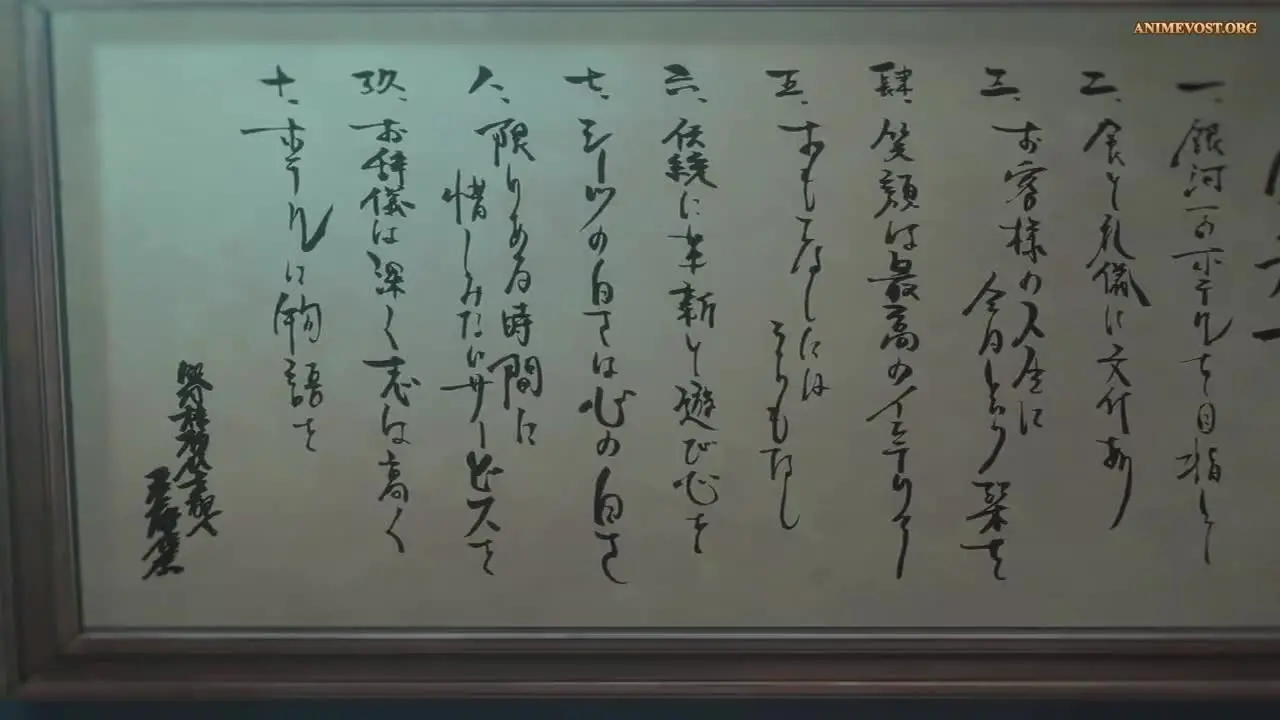 ANIMEVOST.ORG
一、銀河一のホテルを目指して
二、食と礼儀に文化あり
三、お客様の人生に
今日という栞を
肆、笑顔は最高のインテリア
五、おもてなしには
うらもなし
六、伝統に革新と遊び心を
七、シーツの白さは心の白さ
八、限りある時間に
惜しみないサービスを
玖、お辞儀は深く志は高く
十、ホテルに物語を